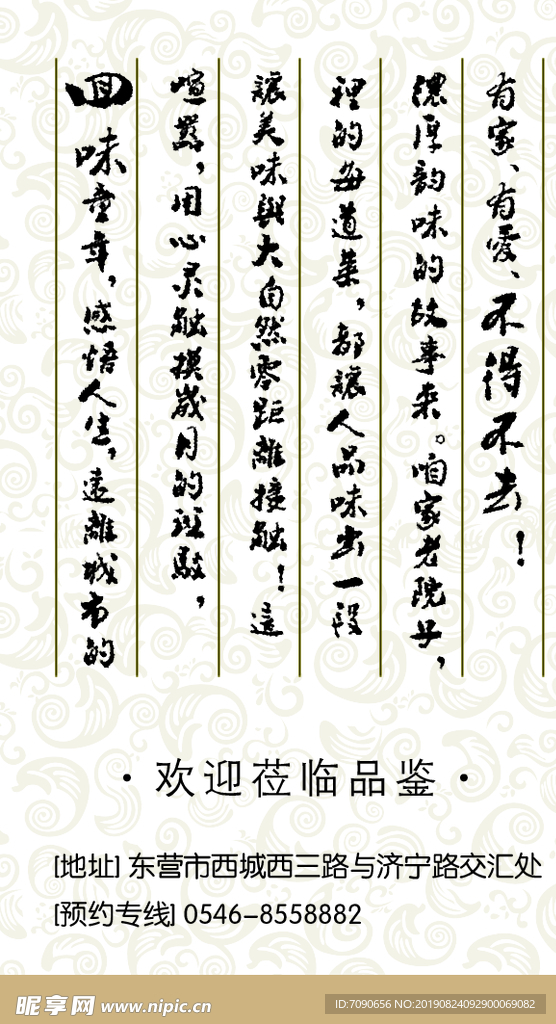 回味童年，感悟人生，远離城市的
喧嚣，用心灵触摸岁月的斑駁，
讓美味與大自然零距離接触！這
裡的每道菜，都讓人品味出一段
濃厚韵味的故事来。咱家老院子，
有家、有愛、不得不去！
·欢迎莅临品鉴·
[地址] 东营市西城西三路与济宁路交汇处
[预约专线] 0546-8558882
昵享网 www.nipic.cn
ID:7090656 NO:20190824092900069082